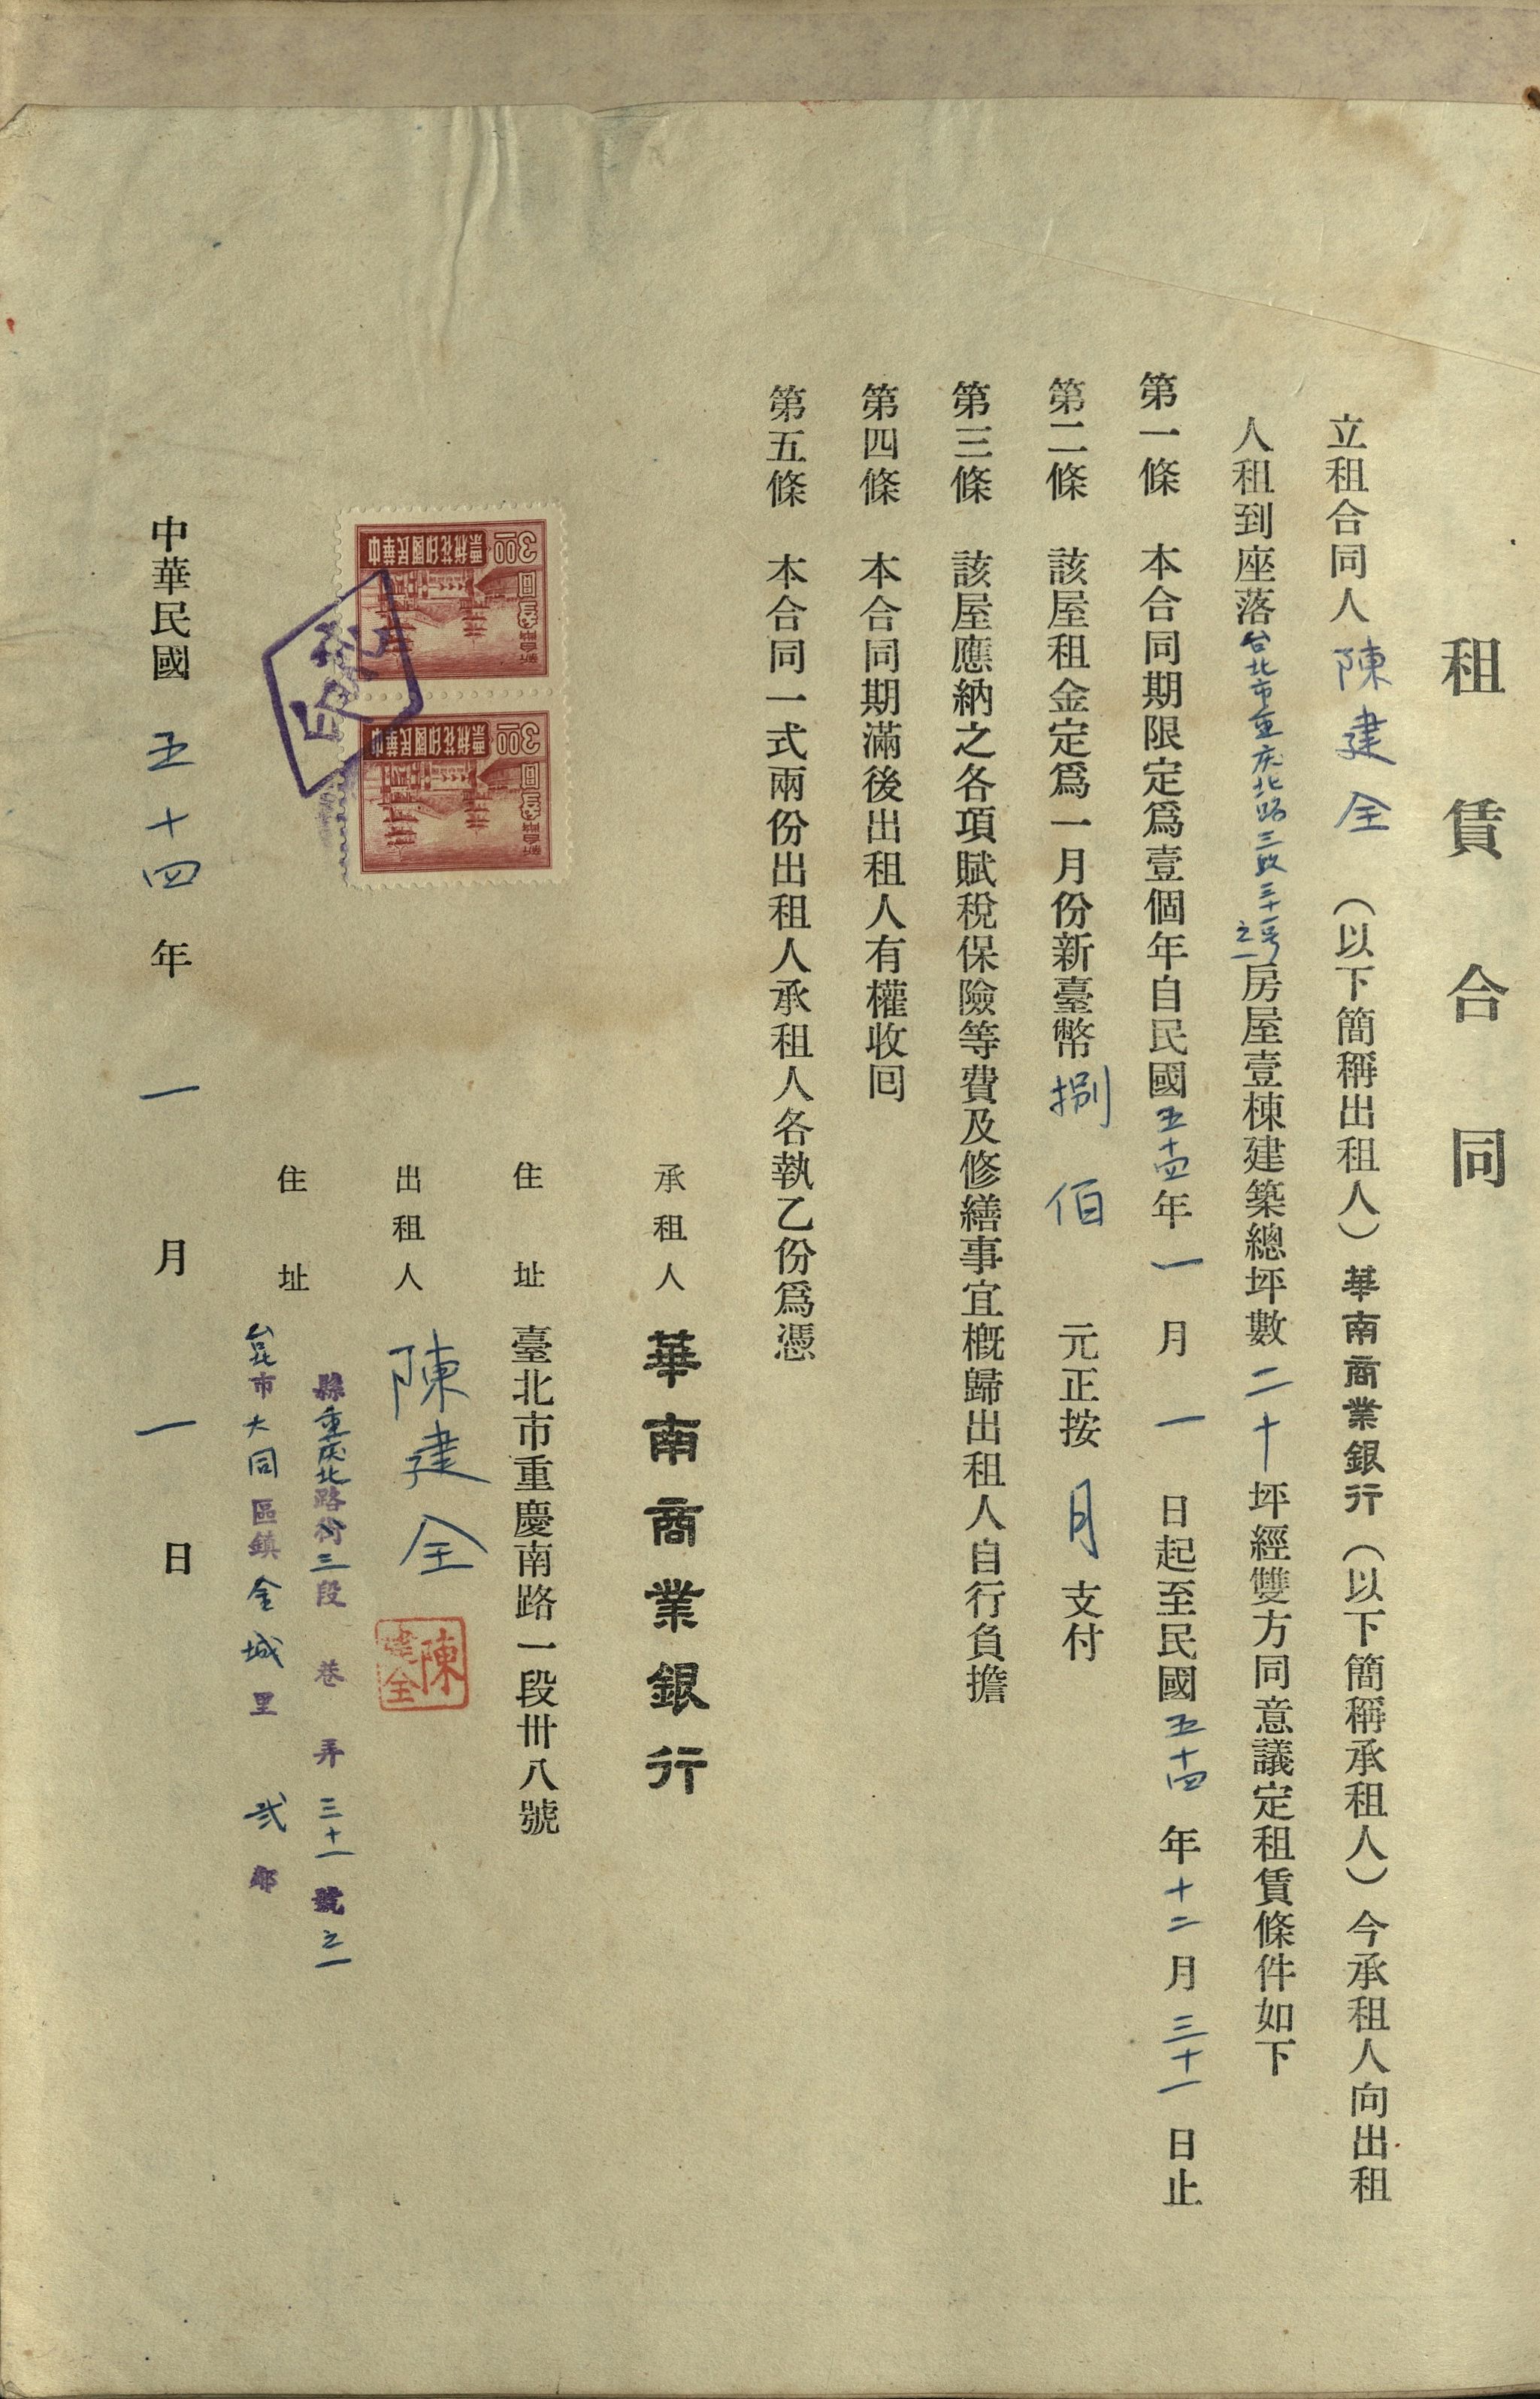 租賃合同
立租合同人陳建全（以下簡稱出租人）華南商業銀行（以下簡稱承租人）今承租人向出租
人租到座落台北市重庆北路三段三十一号之一房屋壹棟建築總坪數二十坪經雙方同意議定租賃條件如下
第一條 本合同期限定爲壹個年自民國五十四年一月一日起至民國五十四年十二月三十一日止
第二條 該屋租金定爲一月份新臺幣捌佰元正按月支付
第三條 該屋應納之各項賦稅保險等費及修繕事宜概歸出租人自行負擔
第四條 本合同期滿後出租人有權收囘
第五條 本合同一式兩份出租人承租人各執乙份爲憑
承租人 華南商業銀行
住址 臺北市重慶南路一段卅八號
出租人 陳建全
陳建全
住址
縣重庆北路街三段 巷 弄三十一號之一
台北市大同區鎮金城里弍鄰
中華民國印花稅票
3.00
圓
中華民國印花稅票
3.00
圓
中華民國五十四年一月一日